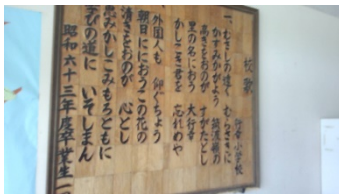 校歌
行幸小学校
一、むさしの遠く むらさきに
かすみかがよう 筑波嶺の
高きをおのが すがたとし
里の名におう 大行幸
かしこき君を 忘れめや
一、外国人も 仰ぐちょう
朝日ににおう この花の
清きをおのが 心とし
恵みかしこみ もろともに
学びの道に いそしまん
昭和六十三年度卒業生一